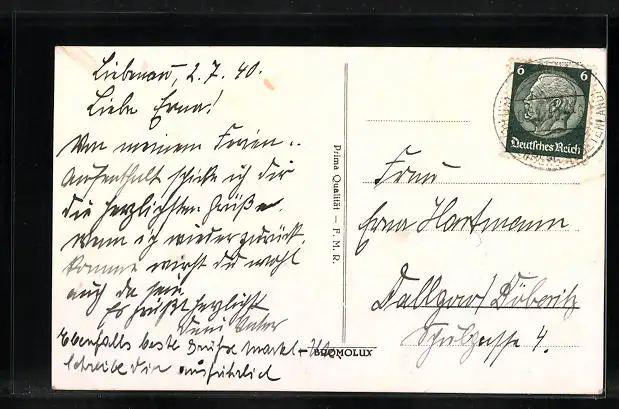 Liebenau, 2.7.40.
Liebe Erna!
Von meinem Ferien-
Aufenthalt schicke ich dir
die herzlichsten Grüße.
Wenn ich wieder zurück-
komme wirst du wohl
auch da sein.
Es grüßt herzlichst
Dein Vater
Ebenfalls beste Grüße
schreibe dir ausführlich
Prima Qualität – F. M. R.
BROMOLUX
6 6
Deutsches Reich
Frau
Erna Hartmann
Dallgow/Döberitz
Schulgasse 4.